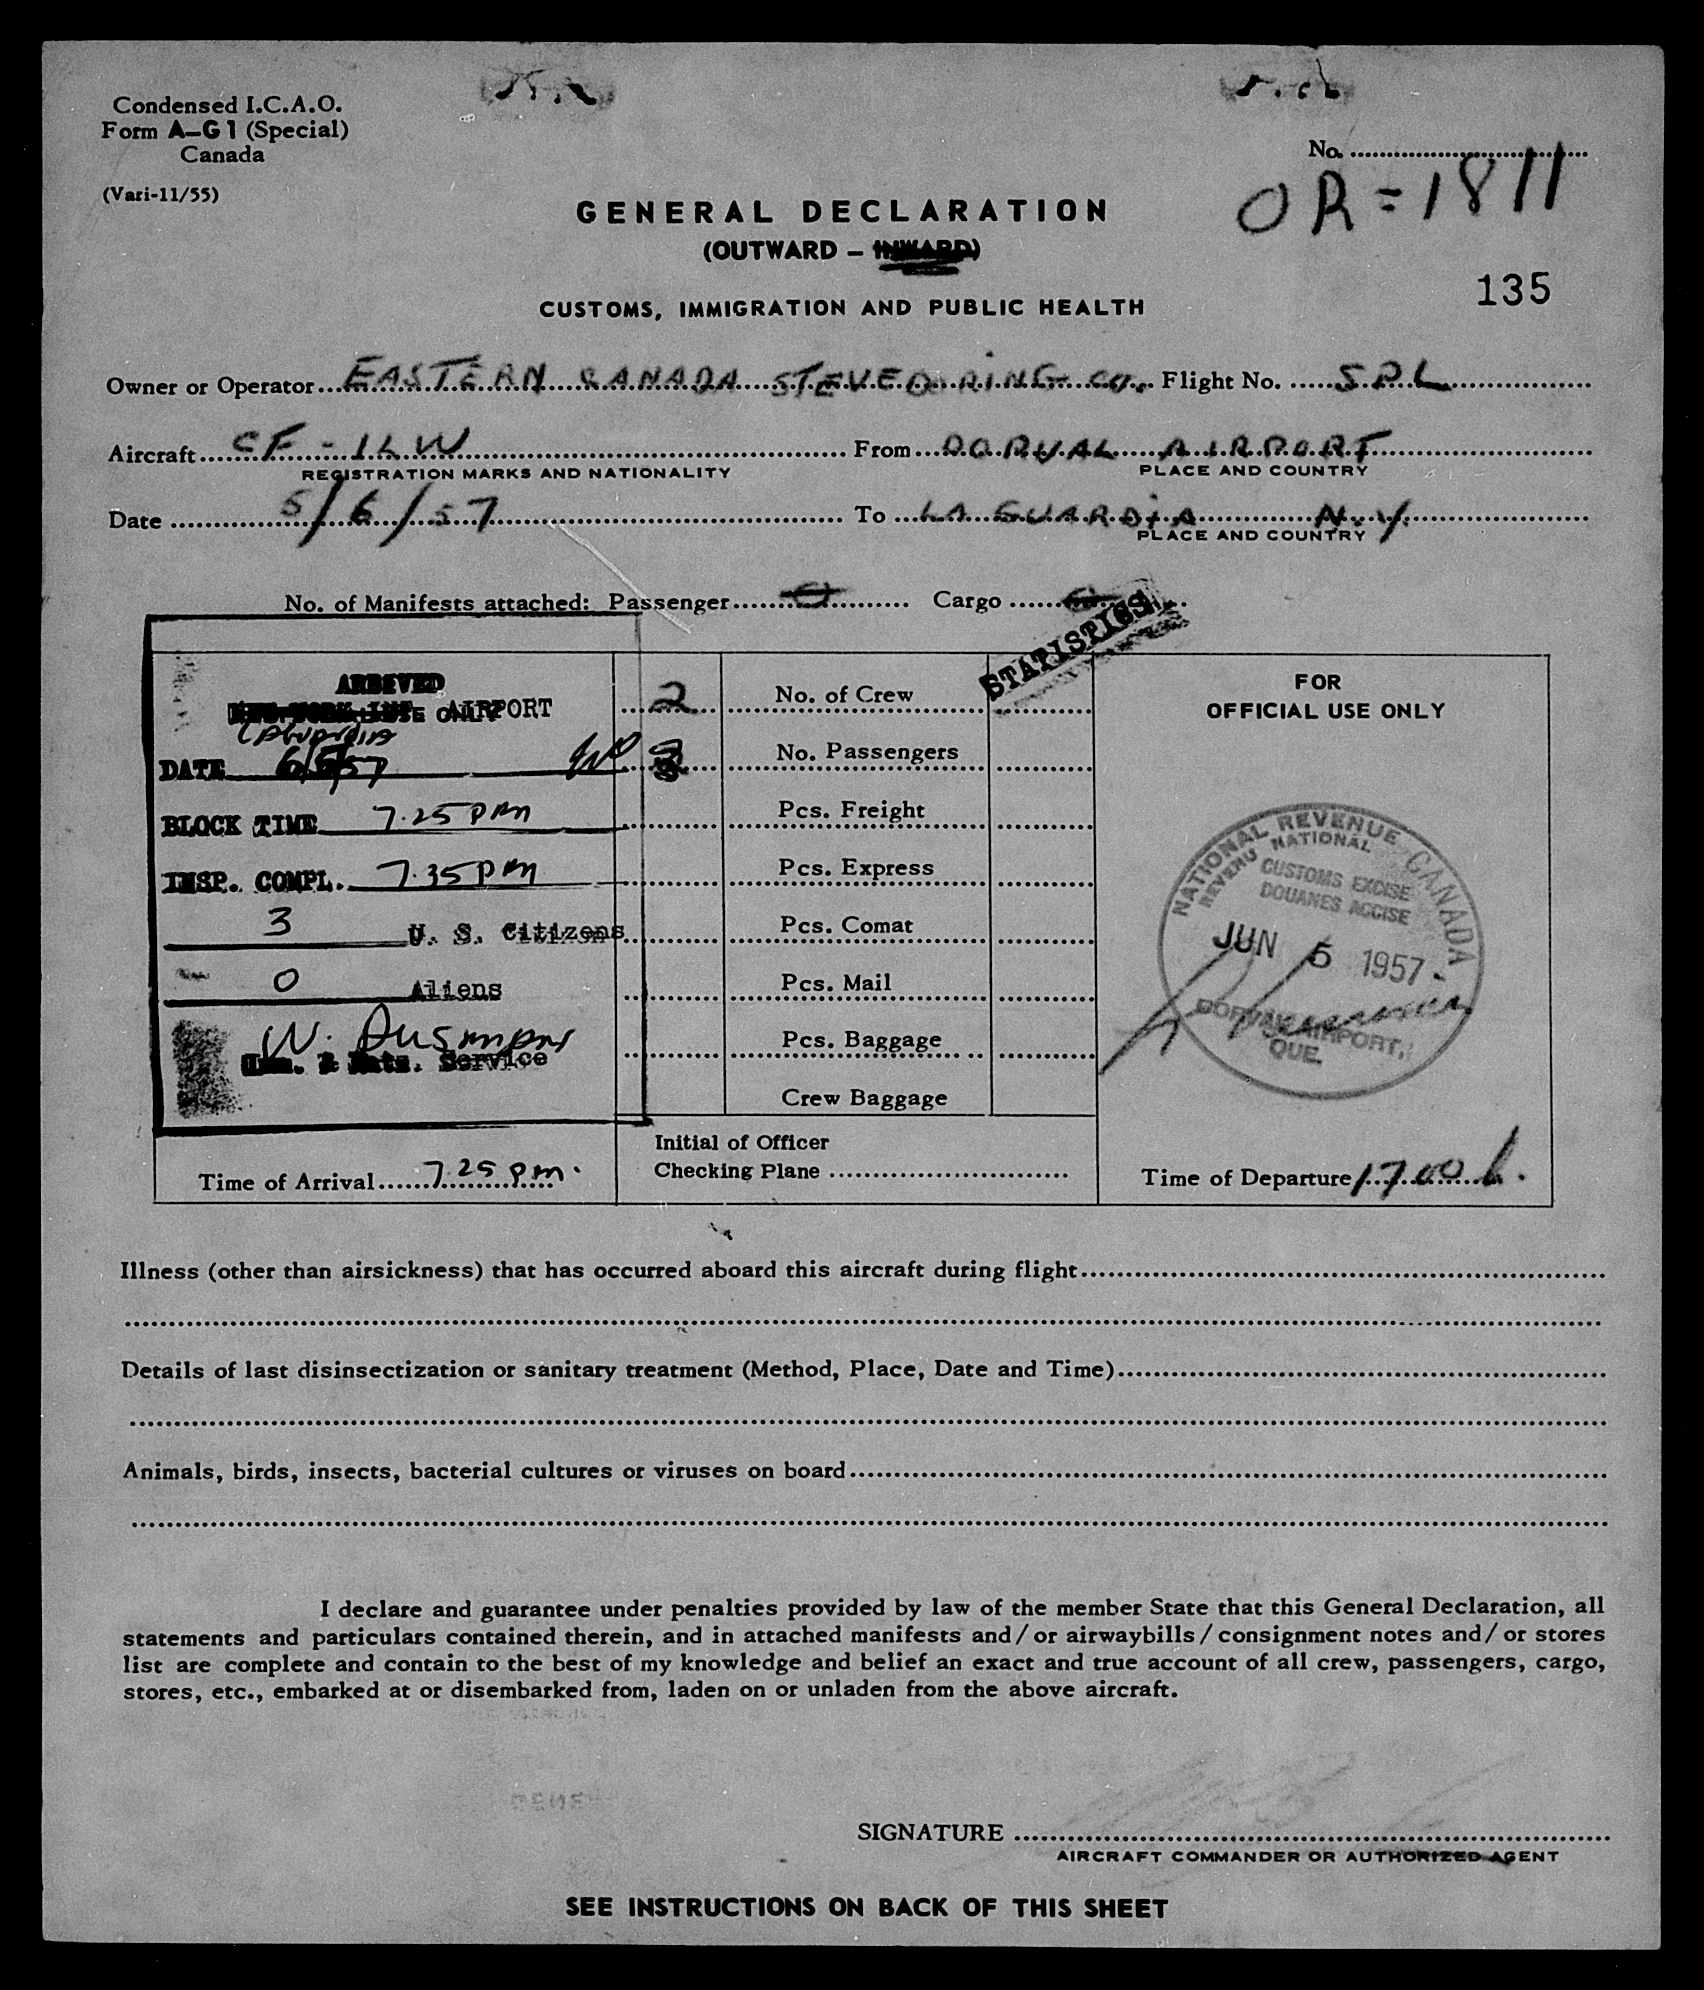 Condensed I.C.A.O.
Form A-G1 (Special)
Canada
(Vari-11/55)
No. ..............................
OR = 1811
GENERAL DECLARATION
(OUTWARD – INWARD)
135
CUSTOMS, IMMIGRATION AND PUBLIC HEALTH
Owner or Operator EASTERN CANADA STEVEDORING CO. Flight No. SPL
Aircraft CF-ILW From DORVAL AIRPORT
REGISTRATION MARKS AND NATIONALITY PLACE AND COUNTRY
Date 5/6/57 To LA GUARDIA N.Y.
PLACE AND COUNTRY
No. of Manifests attached: Passenger 0 Cargo 0
STATISTICS
ARRIVED
AIRPORT
LAGUARDIA
DATE 6/5/57
BLOCK TIME 7.25 PM
INSP. COMPL. 7.35 PM
3 U. S. Citizens
0 Aliens
Imm. & Natz. Service
Time of Arrival 7.25 pm.
2 No. of Crew
No. Passengers
Pcs. Freight
Pcs. Express
Pcs. Comat
Pcs. Mail
Pcs. Baggage
Crew Baggage
Initial of Officer
Checking Plane ............................
FOR
OFFICIAL USE ONLY
NATIONAL REVENUE CANADA
REVENU NATIONAL
CUSTOMS EXCISE
DOUANES ACCISE
JUN 5 1957
DORVAL AIRPORT,
QUE.
Time of Departure 17.00 h.
Illness (other than airsickness) that has occurred aboard this aircraft during flight
Details of last disinsectization or sanitary treatment (Method, Place, Date and Time)
Animals, birds, insects, bacterial cultures or viruses on board
I declare and guarantee under penalties provided by law of the member State that this General Declaration, all
statements and particulars contained therein, and in attached manifests and/or airwaybills/consignment notes and/or stores
list are complete and contain to the best of my knowledge and belief an exact and true account of all crew, passengers, cargo,
stores, etc., embarked at or disembarked from, laden on or unladen from the above aircraft.
SIGNATURE
AIRCRAFT COMMANDER OR AUTHORIZED AGENT
SEE INSTRUCTIONS ON BACK OF THIS SHEET